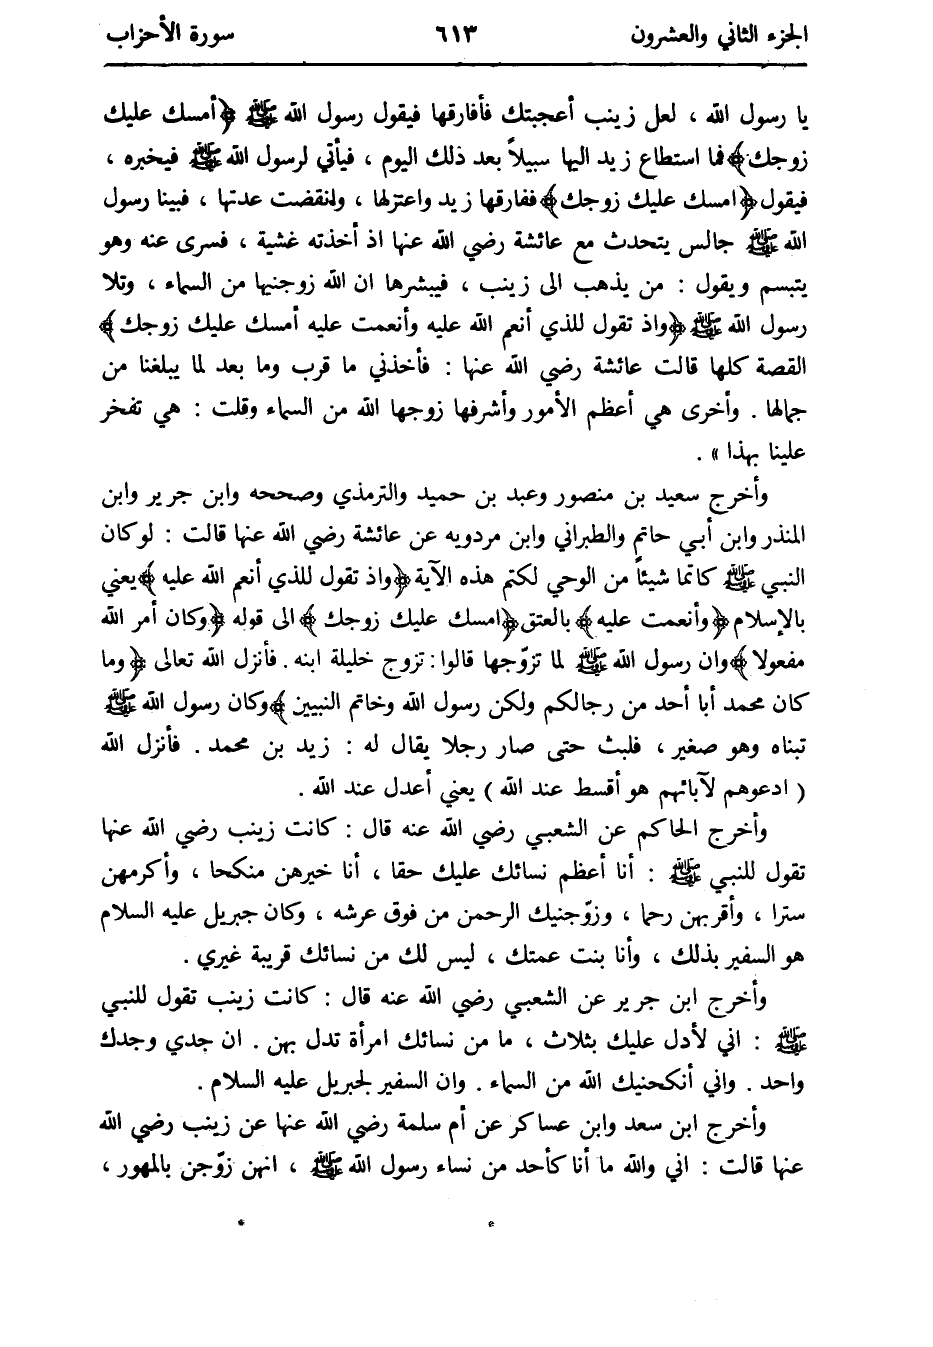 الجزء الثاني والعشرون ٦١٣ سورة الأحزاب
يا رسول الله ، لعل زينب أعجبتك فأفارقها فيقول رسول الله ﷺ ﴿أمسك عليك
زوجك﴾ فما استطاع زيد اليها سبيلاً بعد ذلك اليوم ، فيأتي لرسول الله ﷺ فيخبره ،
فيقول ﴿امسك عليك زوجك﴾ ففارقها زيد واعتزلها ، وانقضت عدتها ، فبينا رسول
الله ﷺ جالس يتحدث مع عائشة رضي الله عنها اذ أخذته غشية ، فسرى عنه وهو
يتبسم ويقول : من يذهب الى زينب ، فيبشرها ان الله زوجنيها من السماء ، وتلا
رسول الله ﷺ ﴿واذ تقول للذي أنعم الله عليه وأنعمت عليه أمسك عليك زوجك﴾
القصة كلها قالت عائشة رضي الله عنها : فأخذني ما قرب وما بعد لما يبلغنا من
جمالها . وأخرى هي أعظم الأمور وأشرفها زوجها الله من السماء وقلت : هي تفخر
علينا بهذا » .
وأخرج سعيد بن منصور وعبد بن حميد والترمذي وصححه وابن جرير وابن
المنذر وابن أبي حاتم والطبراني وابن مردويه عن عائشة رضي الله عنها قالت : لو كان
النبي ﷺ كاتما شيئاً من الوحي لكتم هذه الآية ﴿واذ تقول للذي أنعم الله عليه﴾ يعني
بالإسلام ﴿وأنعمت عليه﴾ بالعتق ﴿امسك عليك زوجك﴾ الى قوله ﴿وكان أمر الله
مفعولا﴾ وان رسول الله ﷺ لما تزوّجها قالوا : تزوج خليلة ابنه . فأنزل الله تعالى ﴿وما
كان محمد أبا أحد من رجالكم ولكن رسول الله وخاتم النبيين﴾ وكان رسول الله ﷺ
تبناه وهو صغير ، فلبث حتى صار رجلا يقال له : زيد بن محمد . فأنزل الله
( ادعوهم لآبائهم هو أقسط عند الله ) يعني أعدل عند الله .
وأخرج الحاكم عن الشعبي رضي الله عنه قال : كانت زينب رضي الله عنها
تقول للنبي ﷺ : أنا أعظم نسائك عليك حقا ، أنا خيرهن منكحا ، وأكرمهن
سترا ، وأقربهن رحما ، وزوّجنيك الرحمن من فوق عرشه ، وكان جبريل عليه السلام
هو السفير بذلك ، وأنا بنت عمتك ، ليس لك من نسائك قريبة غيري .
وأخرج ابن جرير عن الشعبي رضي الله عنه قال : كانت زينب تقول للنبي
ﷺ : اني لأدل عليك بثلاث ، ما من نسائك امرأة تدل بهن . ان جدي وجدك
واحد . واني أنكحنيك الله من السماء . وان السفير لجبريل عليه السلام .
وأخرج ابن سعد وابن عساكر عن أم سلمة رضي الله عنها عن زينب رضي الله
عنها قالت : اني والله ما أنا كأحد من نساء رسول الله ﷺ ، انهن زوّجن بالمهور ،